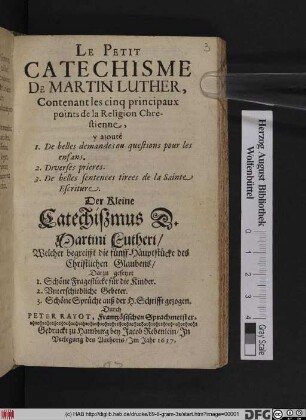 3
LE PETIT
CATECHISME
DE MARTIN LUTHER,
Contenant les cinq principaux
points de la Religion Chre-
stienne,
y ajouté
1. De belles demandes ou questions pour les
enfans.
2. Diverses prieres.
3. De belles sentences tirees de la Sainte
Escriture.
Der Kleine
Catechißmus D.
Martini Lutheri/
Welcher begreifft die fünff Hauptstücke des
Christlichen Glaubens/
Darzu gesetzet
1. Schöne Fragestücke für die Kinder.
2. Unterschiedliche Gebeter.
3. Schöne Sprüche auß der H. Schrifft gezogen.
Durch
PETER RAYOT, Frantzösischen Sprachmeister.
Gedruckt zu Hamburg bey Jacob Rebenlein/ Im
Verlegung des Authoris/ Im Jahr 1657.
Herzog August Bibliothek
Wolfenbüttel
Grey Scale
(c) HAB http://diglib.hab.de/drucke/
DFG